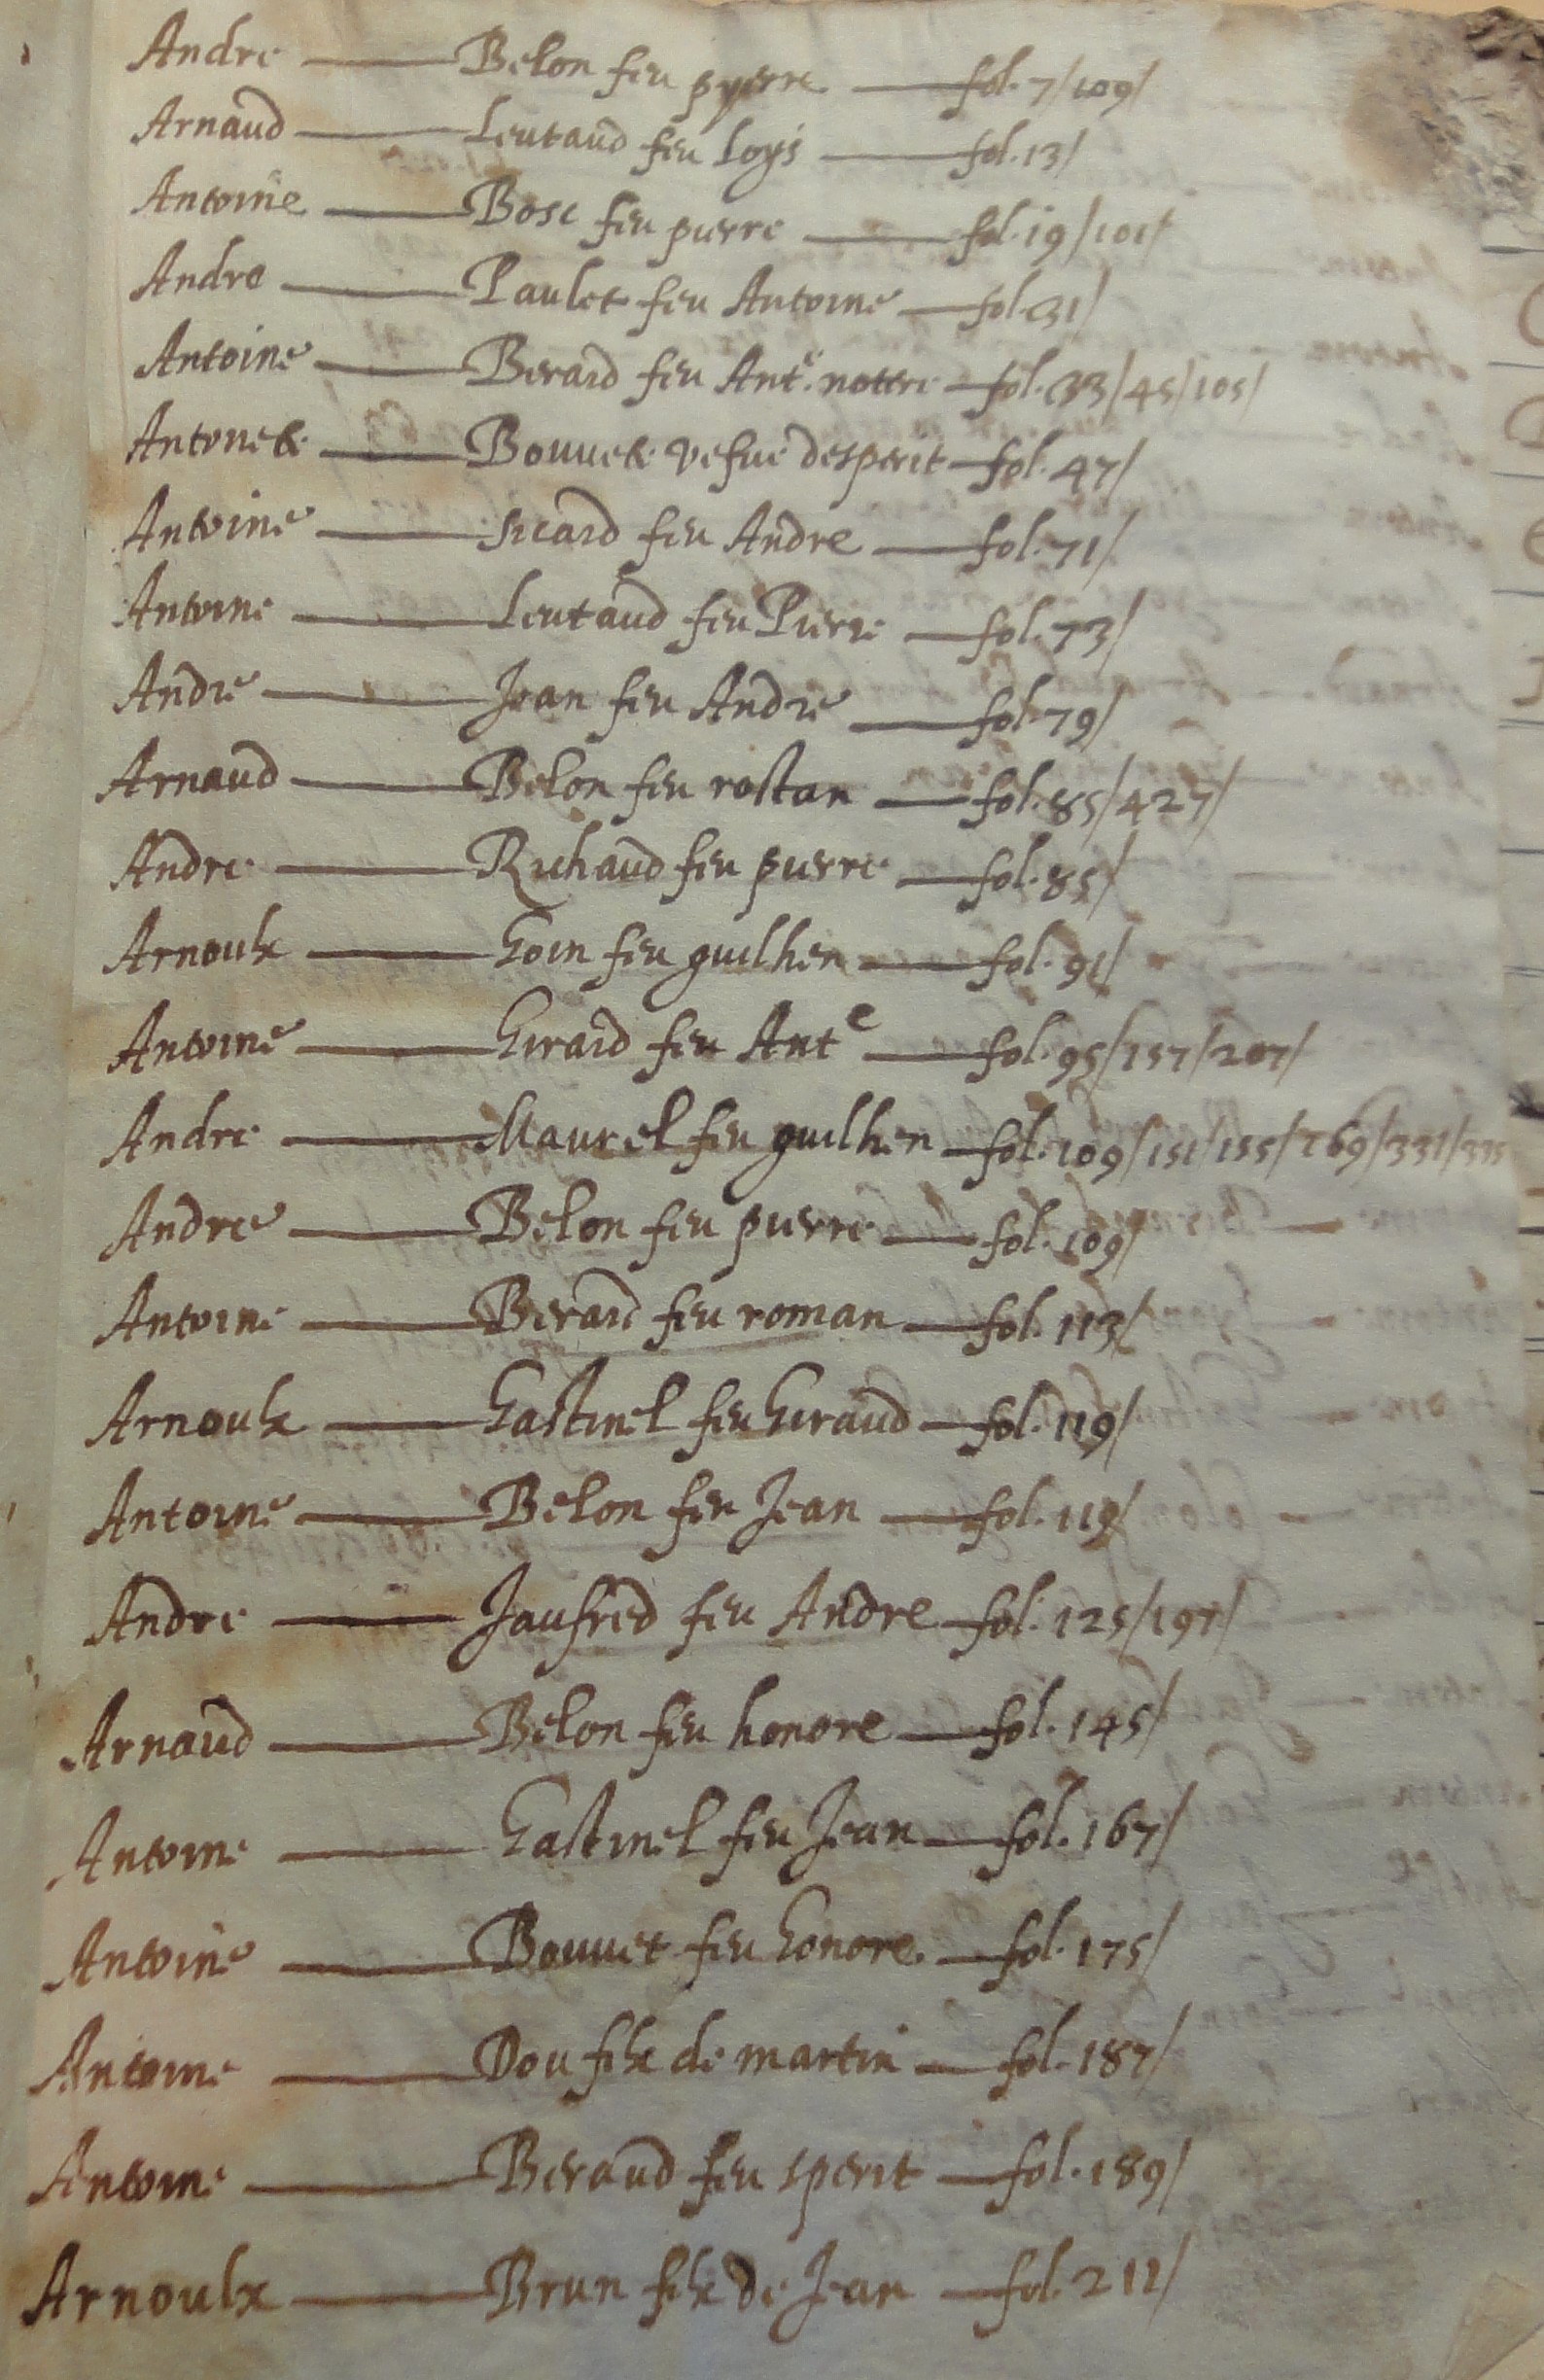 Andre — Belon feu pyerre — fol. 7/109/
Arnaud — Leutaud feu loys — fol. 13/
Antoine — Bosc feu pierre — fol. 19/101/
Andre — Paulet feu Antoine — fol. 31/
Antoine — Berard feu Antᵉ. nottre — fol. 33/45/105/
Antonete — Bouuete vefue desperit — fol. 47/
Antoine — sicard feu Andre — fol. 71/
Antoine — Leutaud feu Pierre — fol. 73/
Andre — Jean feu Andre — fol. 79/
Arnaud — Belon feu rostan — fol. 85/427/
Andre — Richaud feu pierre — fol. 85/
Arnoulx — Goin feu guilhen — fol. 91/
Antoine — Girard feu Antᵉ — fol. 95/157/207/
Andre — Maurel feu guilhen — fol. 109/151/155/269/331/335
Andre — Belon feu pierre — fol. 109/
Antoine — Berard feu roman — fol. 113/
Arnoulx — Gastinel feu Giraud — fol. 119/
Antoine — Belon feu Jean — fol. 119/
Andre — Jaufred feu Andre — fol. 125/197/
Arnaud — Belon feu honore — fol. 145/
Antoine — Gastinel feu Jean — fol. 167/
Antoine — Bouuet feu honore. — fol. 175/
Antoine — Dou filx de martin — fol. 187/
Antoine — Beraud feu sperit — fol. 189/
Arnoulx — Brun filx de Jean — fol. 211/